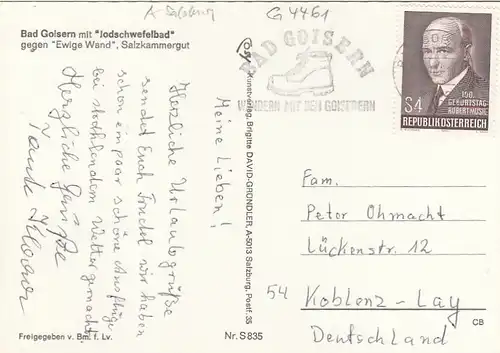 A Salzburg
G 4461
Bad Goisern mit "Jodschwefelbad"
gegen "Ewige Wand", Salzkammergut
Meine Lieben!
Herzliche Urlaubsgrüße
sendet Euch wir haben
schon ein paar schöne Ausflüge
bei strahlendem Wetter gemacht
Herzliche Grüße
Tante
Freigegeben v. Bm. f. Lv.
Nr. S 835
Kunstverlag, Brigitte DAVID-GRÜNDLER, A-5013 Salzburg, Postf. 35
BAD GOISERN
WANDERN MIT DEN GOISERERN
S4
150.
GEBURTSTAG
ROBERT
REPUBLIK ÖSTERREICH
Fam.
Peter Ohmacht
Lückenstr. 12
54 Koblenz - Lay
Deutschland
CB